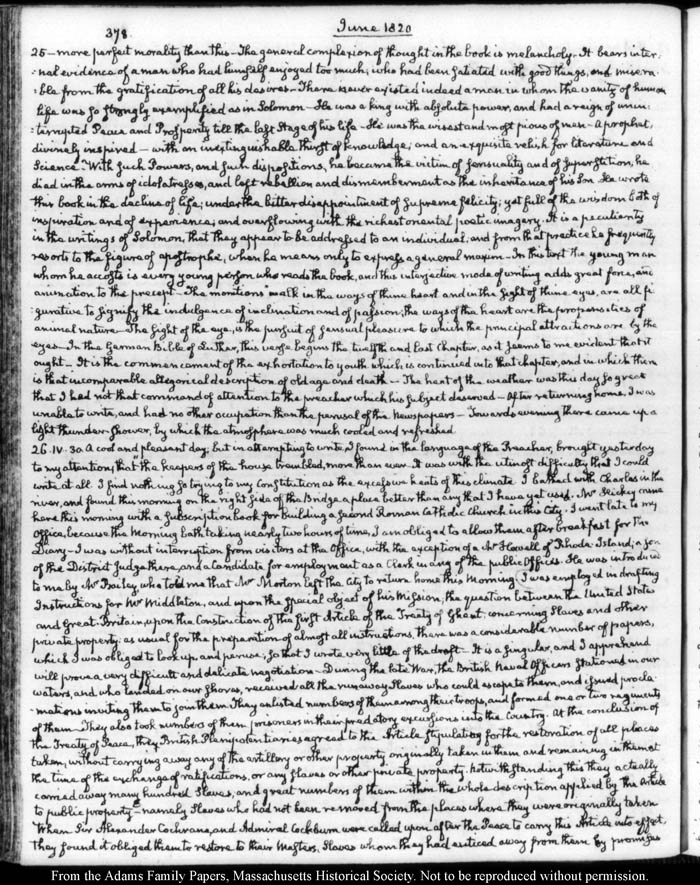 378.
June 1820
25 – more perfect morality than this – The general complexion of thought in the book is melancholy. It bears inter-
-nal evidence of a man who had himself enjoyed too much; who had been satiated with good things, and misera-
-ble from the gratification of all his desires – There never existed indeed a man in whom the vanity of human
life was so strongly exemplified as in Solomon – He was a king with absolute power, and had a reign of unin-
-terrupted Peace and Prosperity till the last stage of his life – He was the wisest and most pious of men – a prophet,
divinely inspired – with an inextinguishable thirst of knowledge; and an exquisite relish for literature and
Science – With such Powers, and such dispositions, he became the victim of sensuality and of superstition, he
died in the arms of idolatresses, and left rebellion and dismemberment as the inheritance of his Son. He wrote
this book in the decline of life; under the bitter disappointment of supreme felicity; yet full of the wisdom both of
inspiration and of experience; and overflowing with the richest oriental poetic imagery. It is a peculiarity
in the writings of Solomon, that they appear to be addressed to an individual, and from that practice he frequently
resorts to the figure of apostrophe, when he means only to express a general maxim – In this text the young man
whom he accosts is every young person who reads the book, and this interjective mode of writing adds great force, and
animation to the precept – The monitions "walk in the ways of thine heart and in the sight of thine eyes, are all fi-
-gurative to signify the indulgence of inclination and of passion; the ways of the heart are the propensities of
animal nature – The sight of the eye, is the pursuit of sensual pleasure to which the principal attractions are by the
eyes – In the German Bible of Luther, this verse begins the twelfth and last Chapter, as it seems to me evident that it
ought – It is the commencement of the exhortation to youth which is continued into that chapter, and in which then
is that incomparable allegorical description of old age and death – The heat of the weather was this day so great
that I had not that command of attention to the preacher which his subject deserved – After returning home, I was
unable to write, and had no other occupation than the perusal of the newspapers – Towards evening there came up a
light thunder shower, by which the atmosphere was much cooled and refreshed.
26. IV. 30. A cool and pleasant day; but in attempting to write, I found in the language of the Preacher, brought yesterday
to my attention, that the keepers of the house trembled, more than ever. It was with the utmost difficulty that I could
write at all. I find nothing so trying to my constitution as the excessive heats of this climate. I bathed with Charles in the
river, and found this morning on the right side of the Bridge a place better than any that I have yet used. Mr came
here this morning with a subscription book for building a second Roman Catholic Church in this City. I went late to my
Office, because the Morning bath taking nearly two hours of time, I am obliged to allow them after breakfast for the
Diary – I was without interruption from visitors at the Office, with the exception of a Mr Howell of Rhode-Island, a son
of the District Judge there, and a Candidate for employment as a Clerk in any of the public Offices. He was introduced
to me by Mr Bailey, who told me that Mr Morton left the City to return home this Morning. I was employed in drafting
Instructions for Mr Middleton, and upon the special object of his Mission, the question between the United States
and Great-Britain, upon the Construction of the first Article of the Treaty of Ghent concerning Slaves and other
private property: as usual for the preparation of almost all instructions, there was a considerable number of papers,
which I was obliged to look up, and peruse; so that I wrote very little of the draft – It is a singular, and I apprehend
will prove a very difficult and delicate negotiation – During the late War, the British Naval Officers stationed in our
waters, and who landed on our shores, received all the runaway slaves who could escape to them, and issued procla-
-mations inviting them to join them. They enlisted numbers of them among their troops, and formed one or two regiments
of them – They also took numbers of them prisoners in their predatory excursions into the Country. At the conclusion of
the Treaty of Peace, they British Plenipotentiaries agreed to the Article stipulating for the restoration of all places
taken, without carrying away any of the artillery or other property originally taken in them and remaining in them at
the time of the exchange of ratifications, or any slaves or other private property. Notwithstanding this they actually
carried away many hundred slaves, and great numbers of them within the whole description applied by the Article
to public property – namely slaves who had not been removed from the places where they were originally taken
When Sir Alexander Cochrane, and Admiral Cockburn were called upon after the Peace to carry this Article into effect,
they found it obliged them to restore to their Masters, slaves whom they had enticed away from them by promises
From the Adams Family Papers, Massachusetts Historical Society. Not to be reproduced without permission.